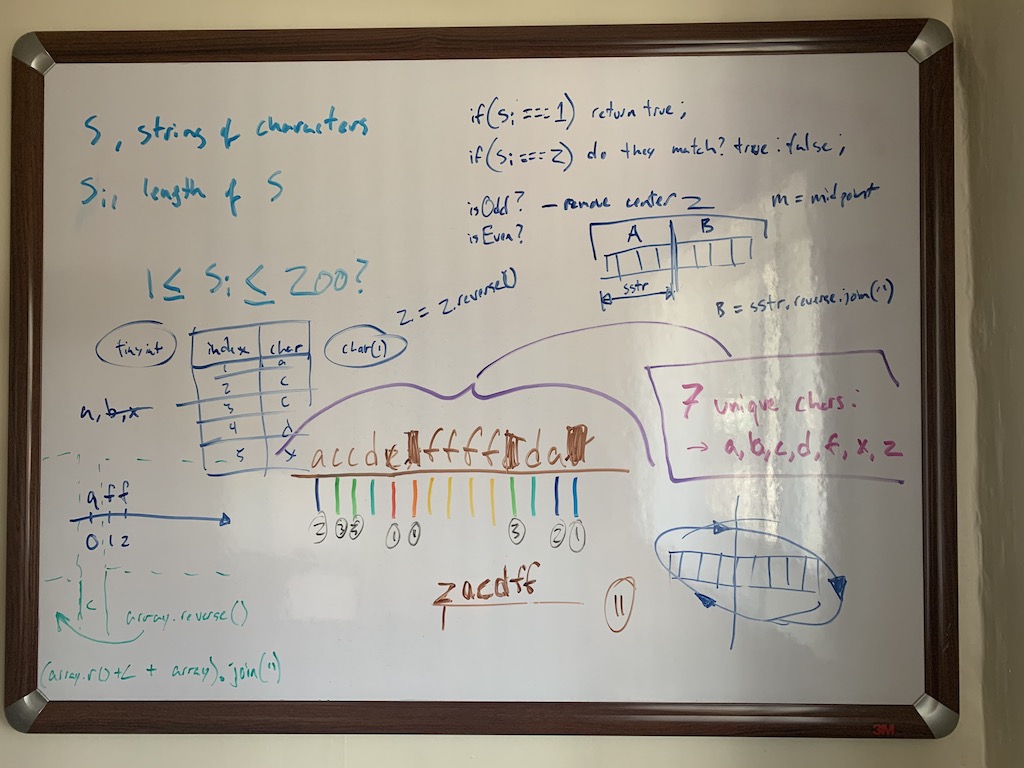 S, string of characters
Si,, length of S
1 ≤ Si ≤ 200?
if(Si === 1) return true;
if(Si === 2) do they match? true : false;
isOdd? - remove center
isEven?
m = midpoint
A B
sstr
B = sstr.reverse.join('')
Z = Z.reverse()
tinyint
index char
char(1)
1 a
2 c
3 c
4 d
5 x
a, b, x
7 unique chars:
→ a, b, c, d, f, x, z
accd ffff da
2 3 3 1 1 3 2 1
aff
0 1 2
c
array.reverse()
(array.r()+C + array).join('')
zacdff
11
3M